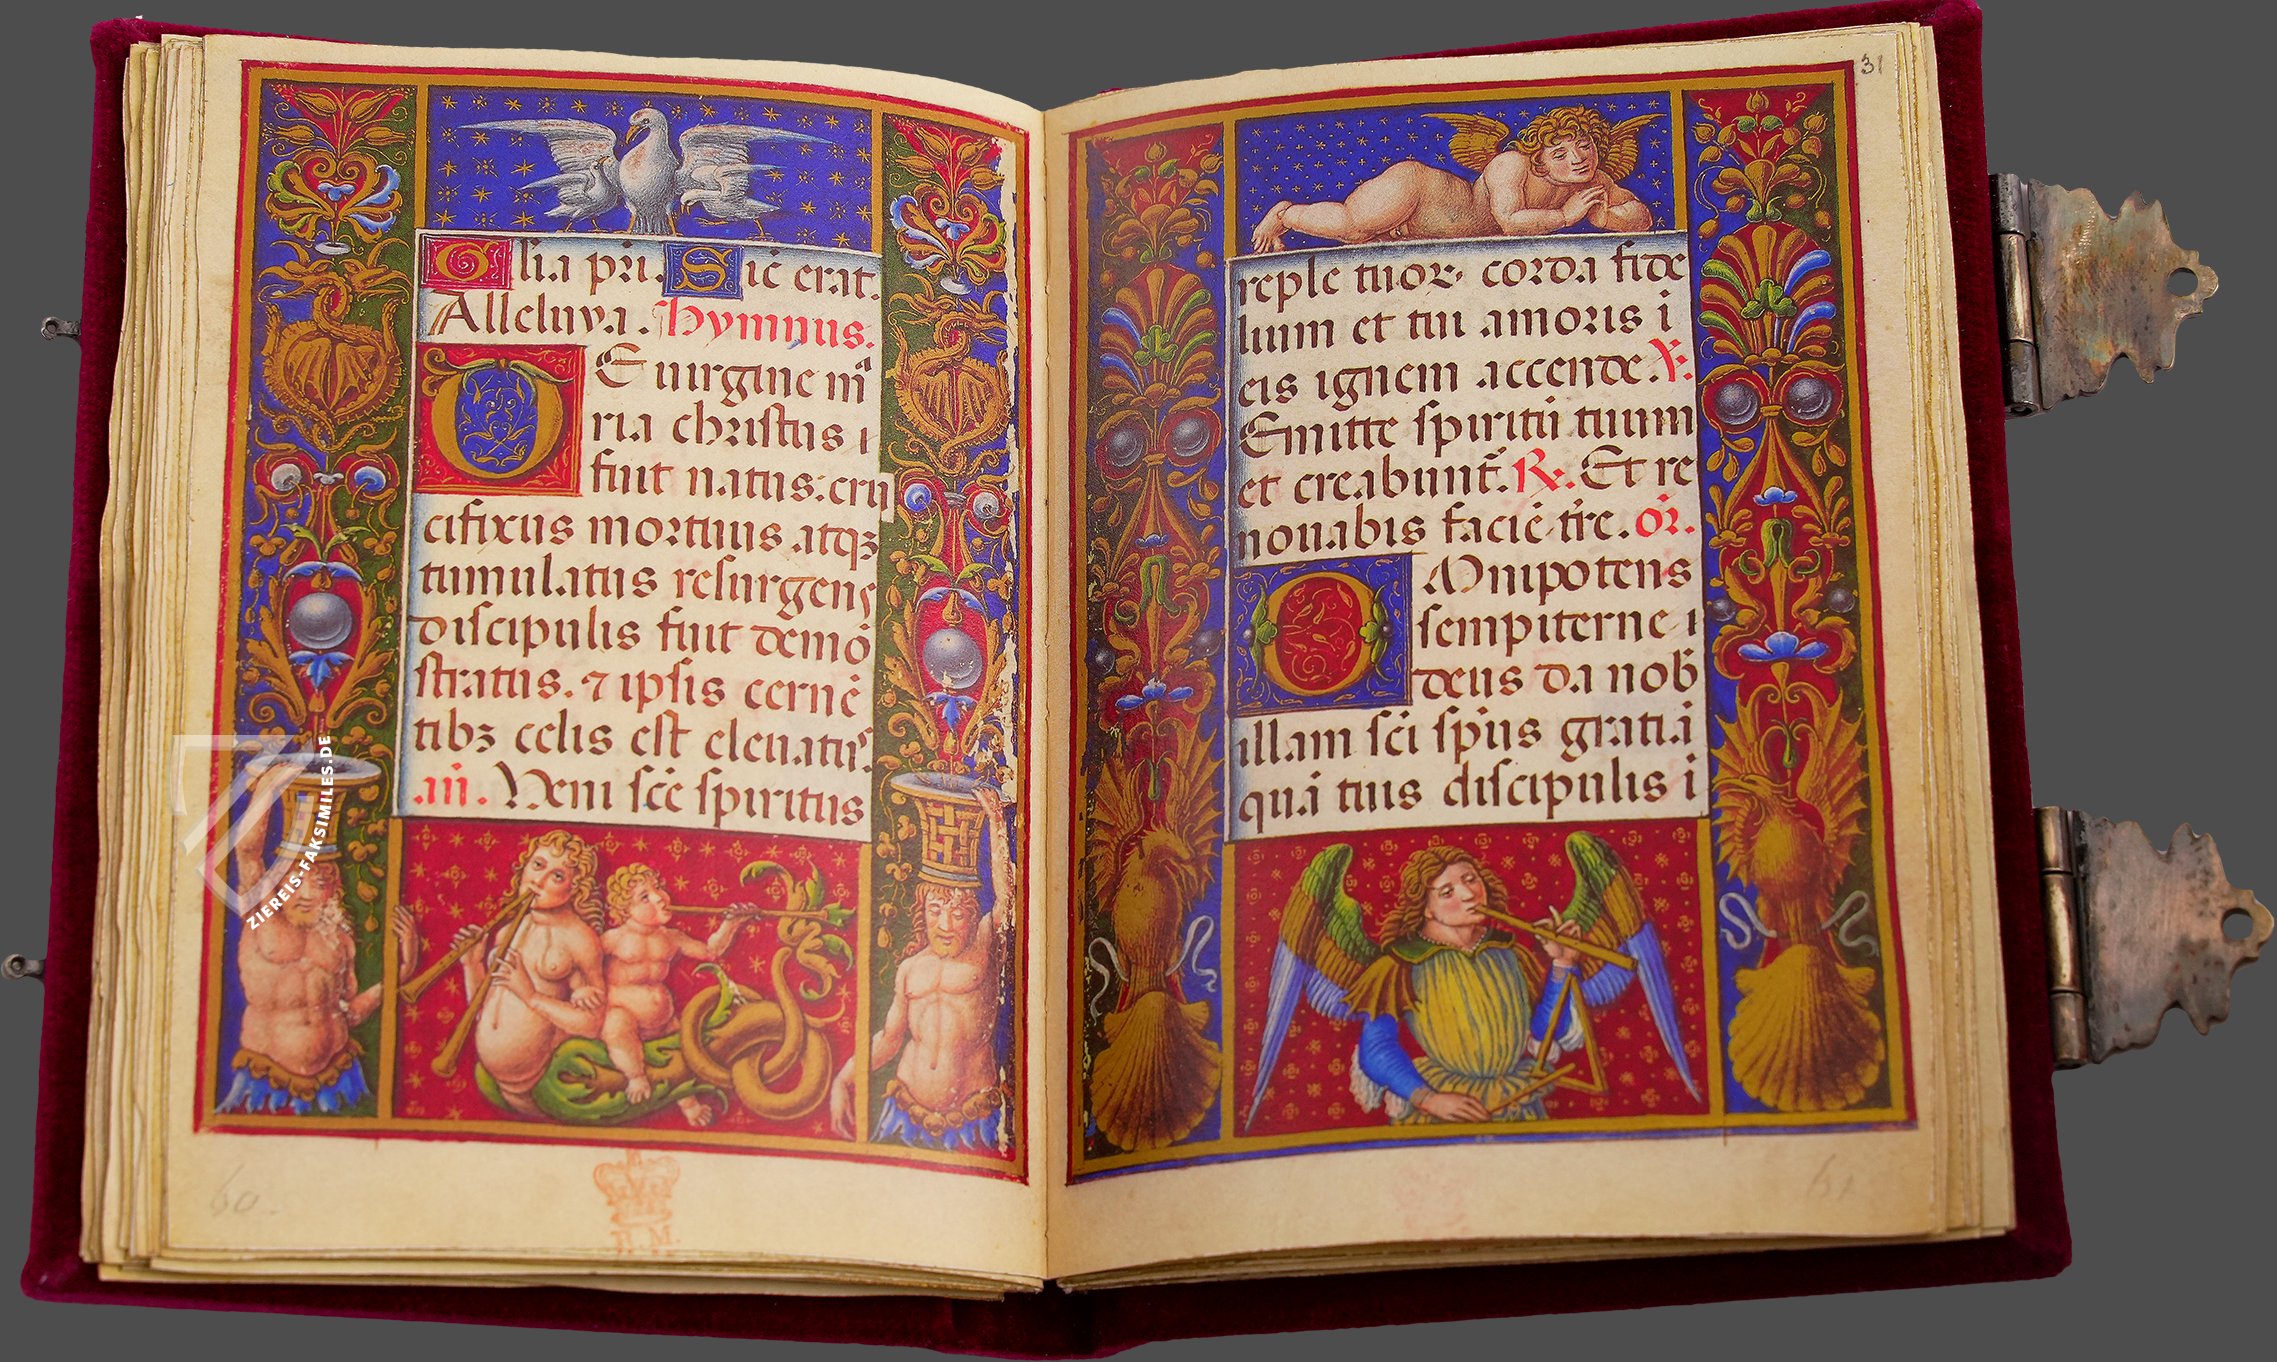 Glia pri. Sic̄ erat.
Alleluya. hymnus.
DE uirgine m̄
ria christus i
fuit natus: cru
cifixus mortuus atqꝫ
tumulatus resurgens
discipulis fuit demō
stratus. ⁊ ipsis cernē
tibꝫ celis est eleuatus.
an̄. Veni sc̄e spiritus
60.
B. M.
ZIEREIS-FAKSIMILES.DE
31
reple tuoꝝ corda fide
lium et tui amoris i
eis ignem accende. ℣.
Emitte spiritū tuum
et creabunt̄. ℟. Et re
nouabis faciē tr̄e. or̄.
OMnipotens
sempiterne
deus da nob̄
illam sc̄i sp̄us gratiā
quā tuis discipulis i
61.